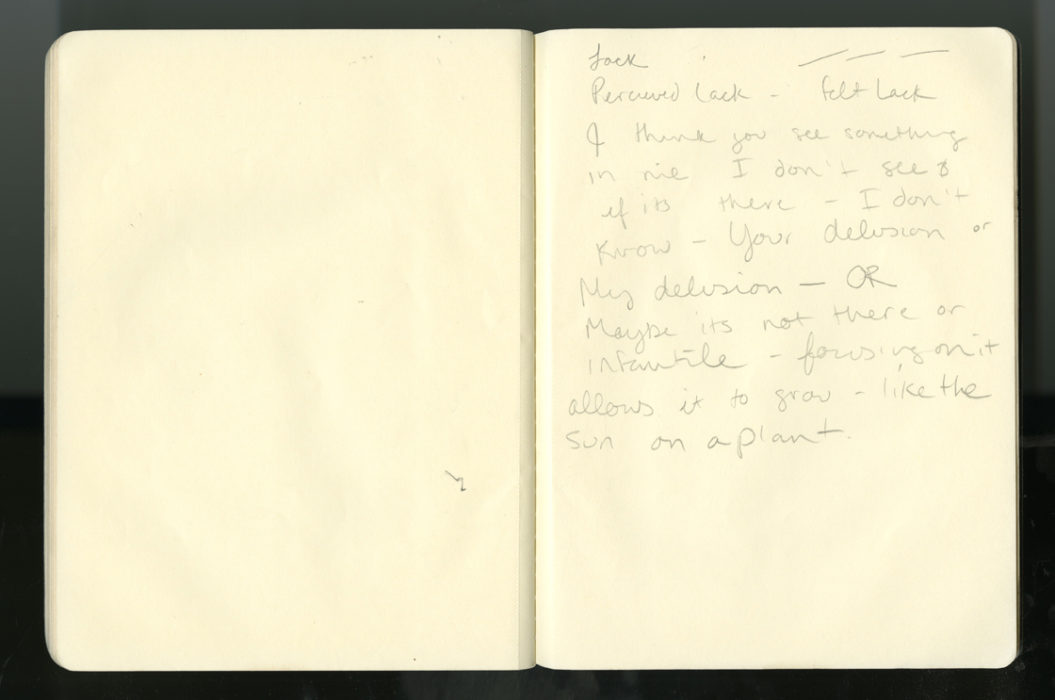 Lack
Percieved Lack - felt Lack
I think you see something
in me I don't see &
if its there - I don't
know - Your delusion or
My delusion - OR
Maybe its not there or
infantile - focusing on it
allows it to grow - like the
sun on a plant.